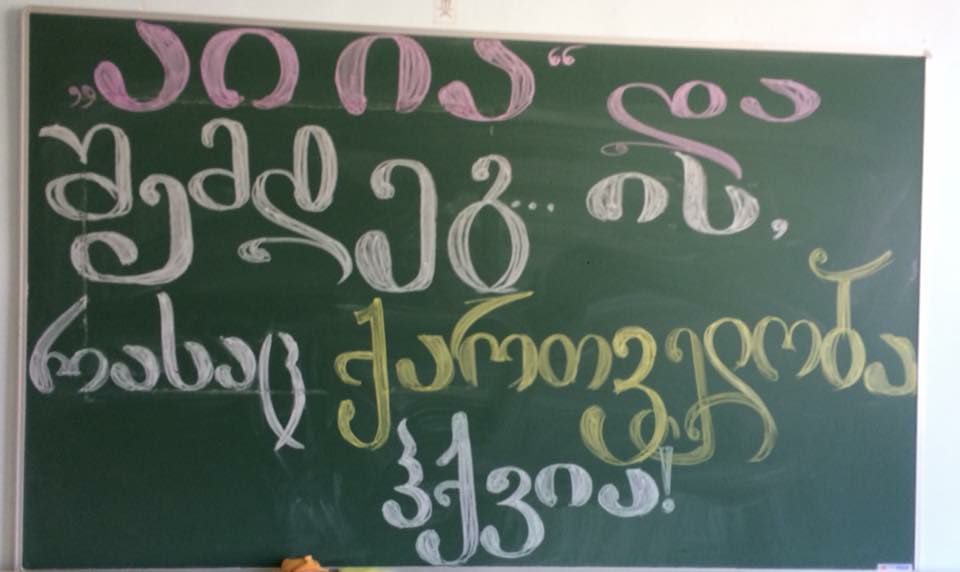 „აი ია“ და
შემდეგ... ის,
რასაც ქართველობა
ჰქვია!